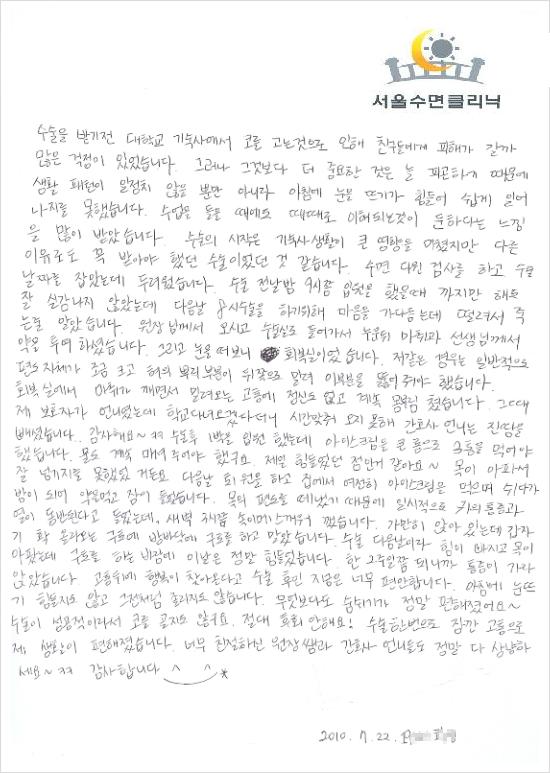 서울수면클리닉
수술을 받기전 대학교 기숙사에서 코를 고는것으로 인해 친구들에게 피해가 갈까
많은 걱정이 있었습니다. 그러나 그것보다 더 중요한 것은 늘 피곤하게 때문에
생활 패턴이 온전치 않을 뿐만 아니라 아침에 눈을 뜨기가 힘들어 쉽게 일어
나지를 못했습니다. 수업을 들을 때에도 때때로 이해되는것이 둔하다는 느낌
을 많이 받았습니다. 수술의 시작은 기숙사생활이 큰 영향을 미쳤지만 다른
이유로도 꼭 받아야 했던 수술이었던 것 같습니다. 수면 다원 검사를 하고 수술
날짜를 잡았는데 두려웠습니다. 수술 전날밤 9시쯤 입원을 했을때 까지만 해도
잘 실감나지 않았는데 다음날 8시수술을 하기위해 마음을 가다듬는데 떨려서 죽
는줄 알았습니다. 원장님께서 오시고 수술실로 들어가서 누운뒤 마취과 선생님께서
약을 투여 하셨습니다. 그리고 눈을 떠보니 회복실이었습니다. 저같은 경우는 일반적으로
편도 자체가 조금 크고 혀의 뿌리부분이 뒤쪽으로 말려 이부분을 뚫어주야 했습니다.
회복실에서 마취가 깨면서 밀려오는 고통에 정신도 없고 계속 몸부림 쳤습니다. 그때
제 보호자가 언니였는데 학교다녀오겠다더니 시간맞춰 오지 못해 간호사 언니는 진땀을
빼셨습니다. 감사해요~ㅋㅋ 수술후 1박을 입원 했는데 아이스크림을 큰 통으로 3통을 먹어야
했습니다. 물도 계속 마셔 주어야 했구요. 제일 힘들었던 점인거 같아요~ 목이 아파서
잘 넘기지를 못했었 거든요. 다음날 퇴원을 하고 집에서 여전히 아이스크림을 먹으며 쉬다가
밤이 되어 약을먹고 잠이 들었습니다. 목의 편도를 떼어냈기 때문에 일시적으로 귀의통증과
열이 동반된다고 들었는데, 새벽 3시쯤 속이메스꺼워 깼습니다. 가만히 앉아 있는데 갑자
기 확 올라오는 구토에 방바닥에 구토를 하고 말았습니다. 수술 다음날이라 힘이 빠지고 목이
아팠는데 구토를 하는 바람에 이날은 정말 힘들었습니다. 한 2주일쯤 되니까 통증이 가라
앉았습니다. 고통뒤에 행복이 찾아온다고 수술 후인 지금은 너무 편안합니다. 아침에 눈뜨
기 힘들지도 않고 그전처럼 졸리지도 않습니다. 무엇보다도 숨쉬기가 정말 편해졌어요~
수술이 성공적이라서 코를 골지도 않구요. 절대 후회 안해요! 수술한번으로 잠깐 고통으로
제 생활이 편해졌습니다. 너무 친절하신 원장쌤과 간호사 언니들도 정말 다 상냥하
세요~ㅋㅋ 감사합니다 ^___^*
2010. 7. 22.